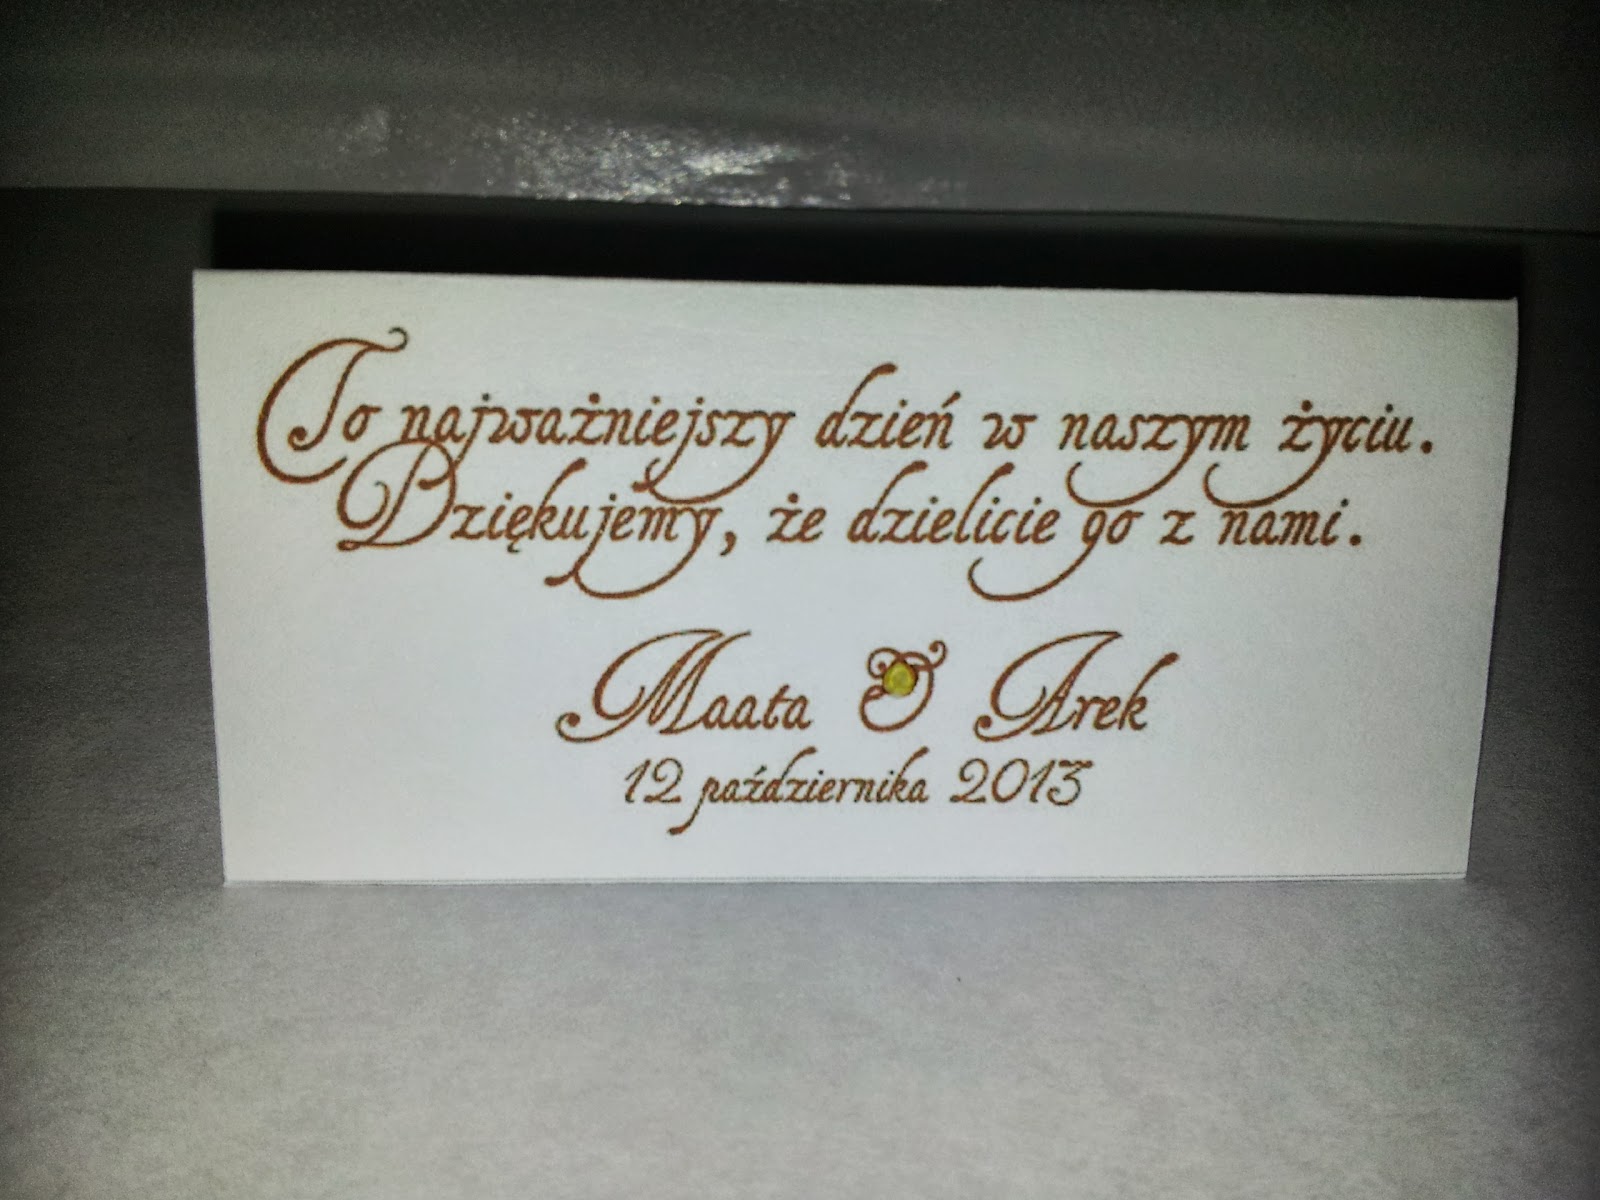 To najważniejszy dzień w naszym życiu.
Dziękujemy, że dzielicie go z nami.
Maata & Arek
12 października 2013